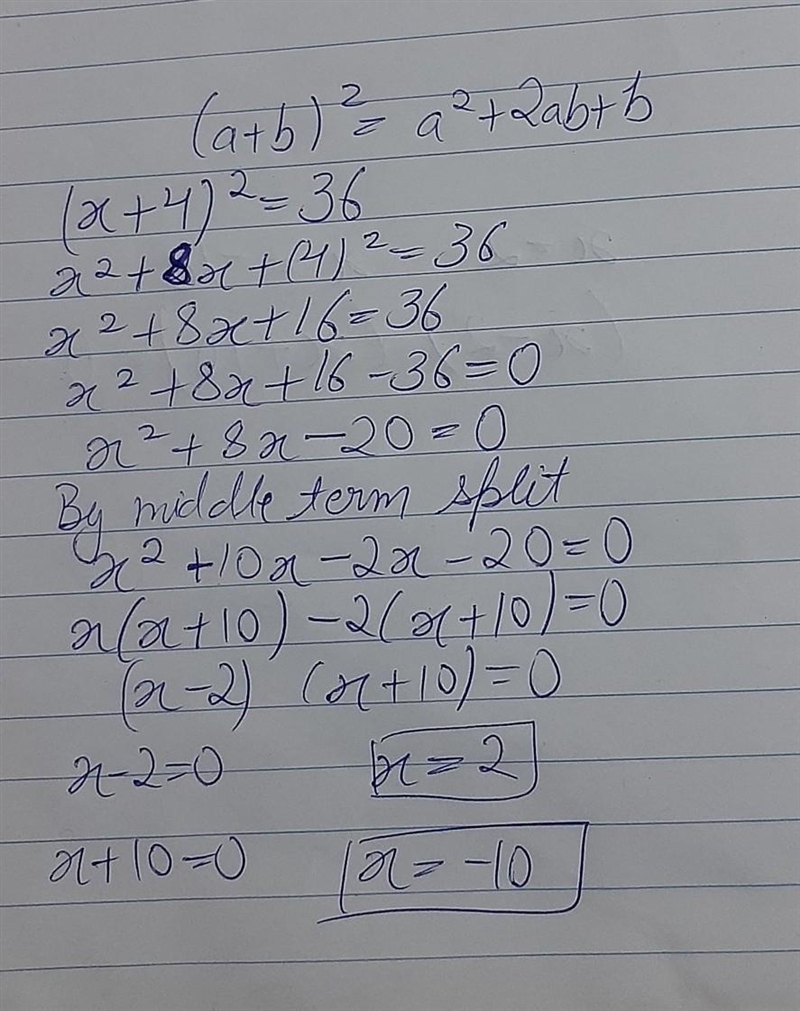 (a+b)² = a²+2ab+b
(x+4)²=36
x²+8x+(4)²=36
x²+8x+16=36
x²+8x+16-36=0
x²+8x-20=0
By middle term split
x²+10x-2x-20=0
x(x+10)-2(x+10)=0
(x-2) (x+10)=0
x-2=0 x=2
x+10=0 x=-10